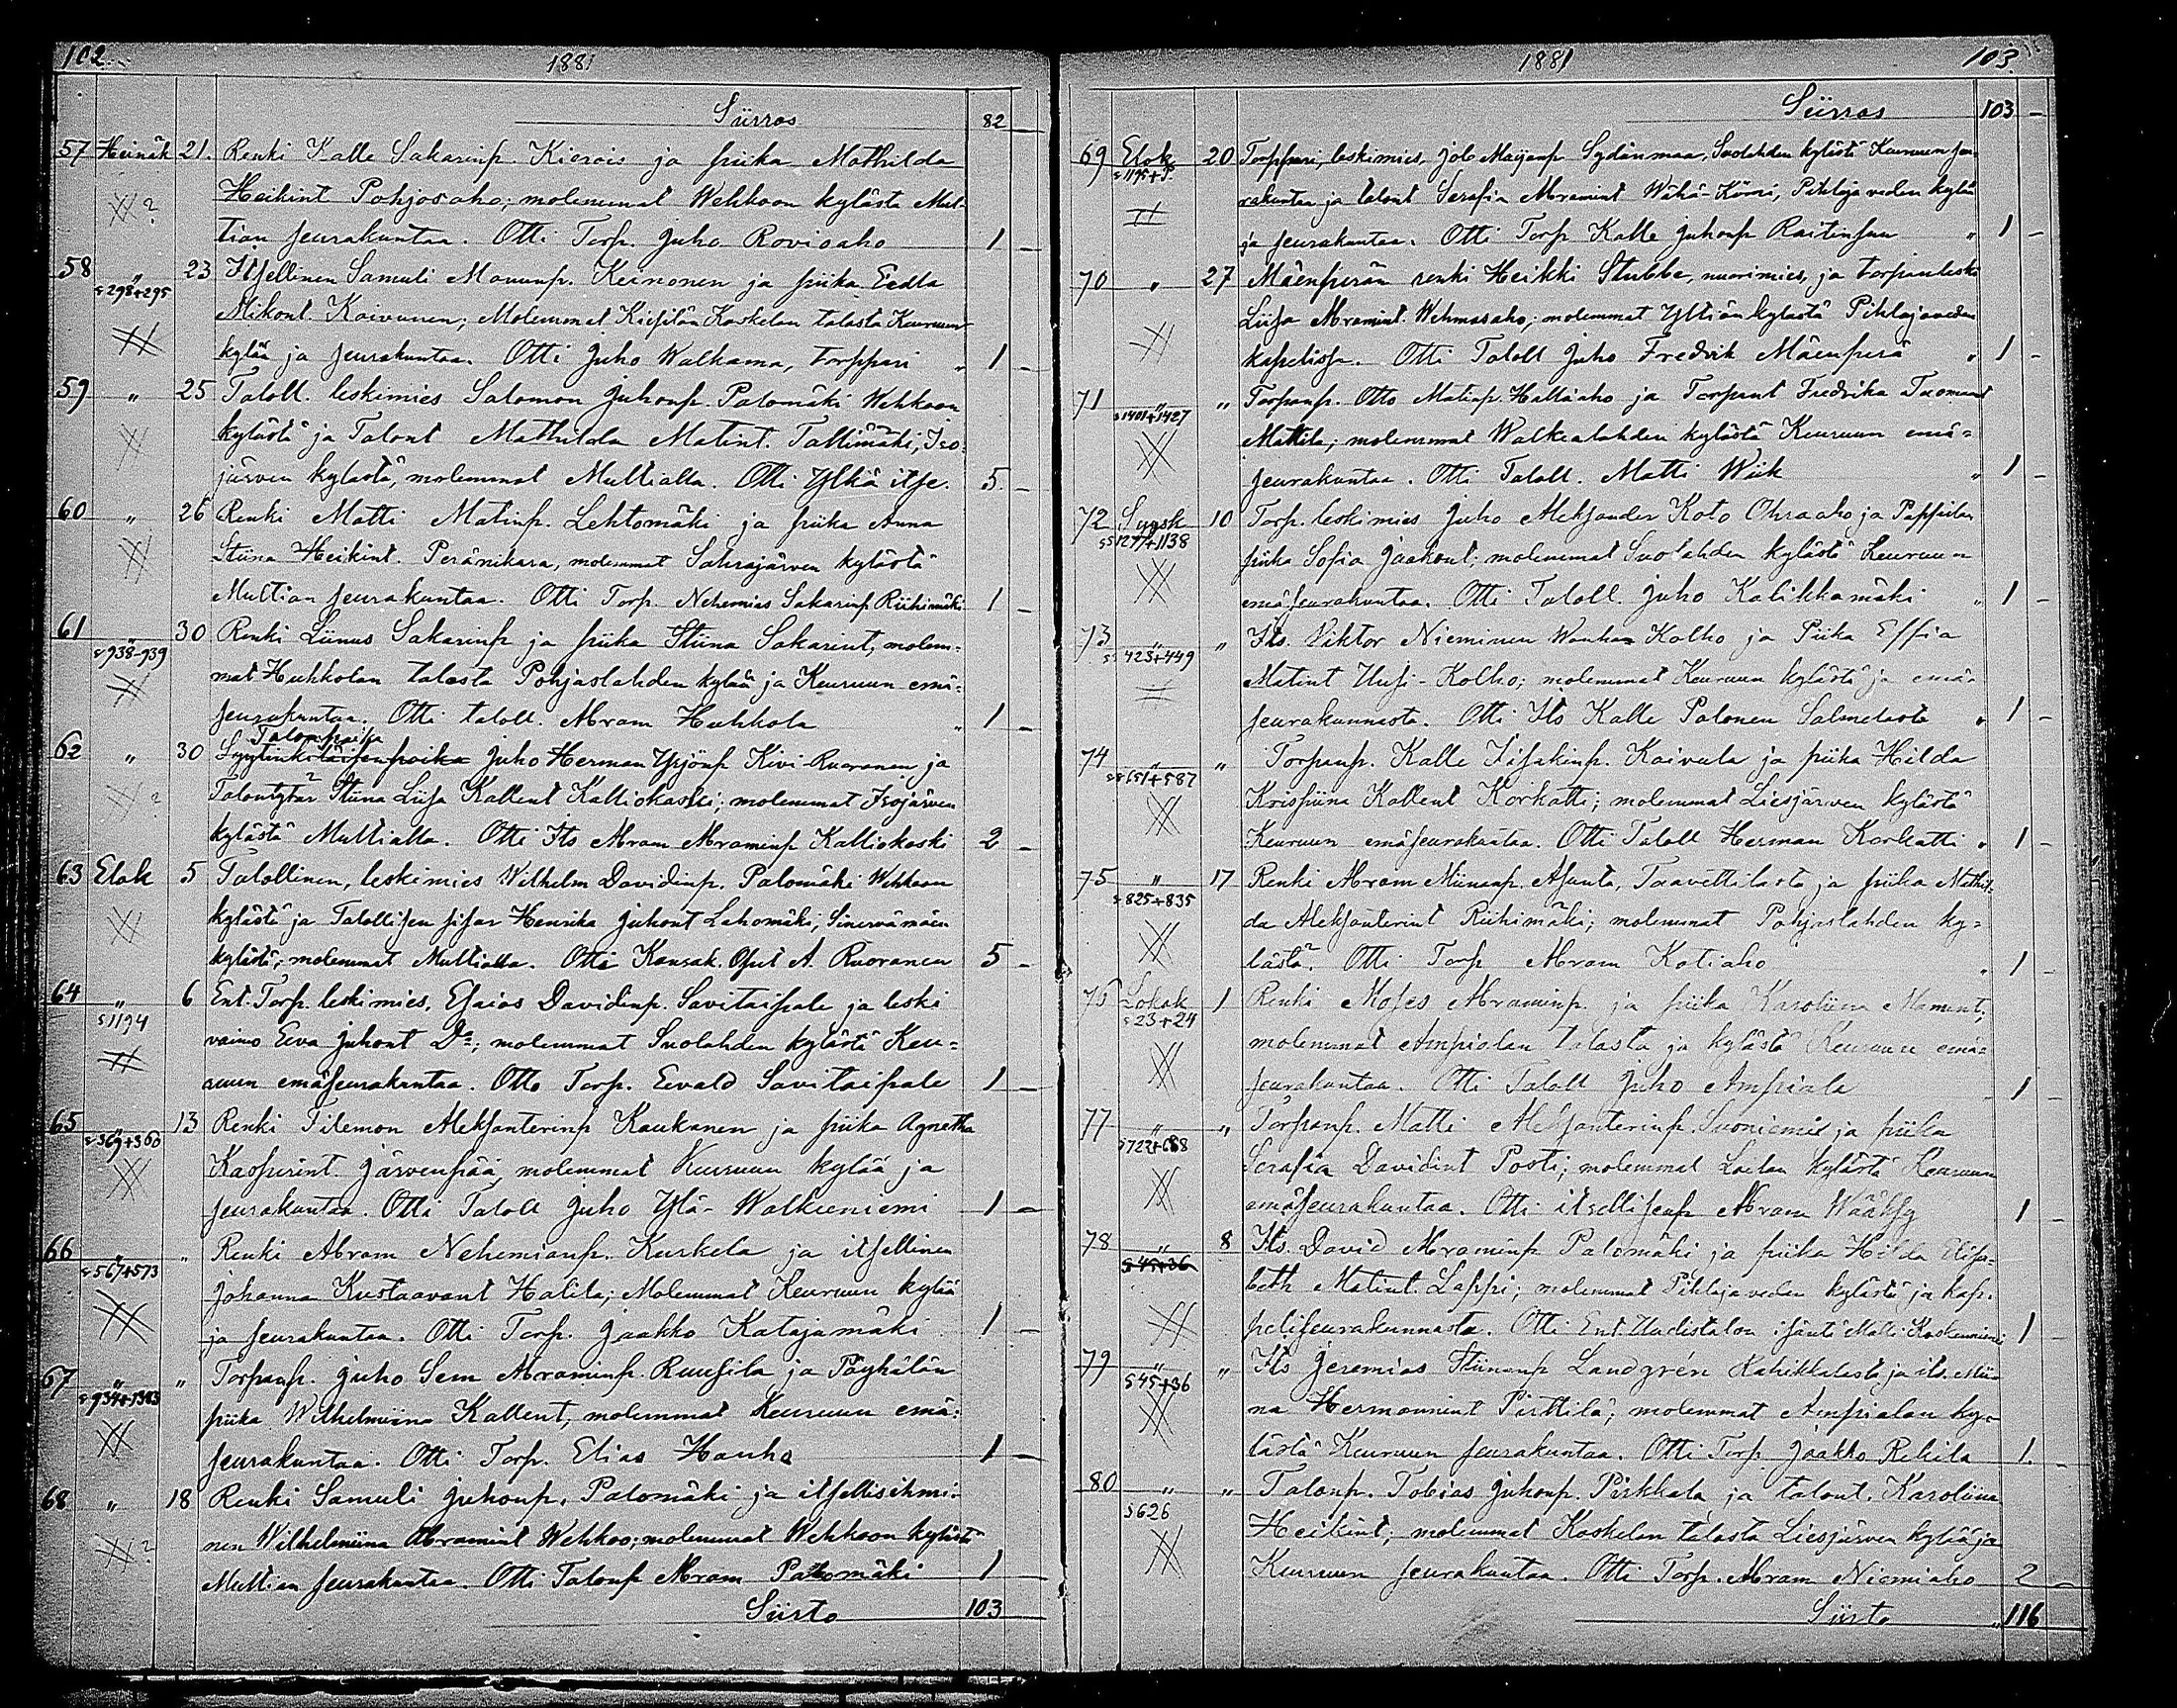 102
1881
Siirros 82
57 Heinäk 21. Renki Kalle Sakarinp. Kierois ja piika Mathilda
Heikint Pohjosaho; molemmat Wehkoon kylästä Mul-
tian seurakuntaa. Otti Torp. Juho Rovioaho 1 -
58 " 23 Itsellinen Samuli Maununp. Keinonen ja piika Eedla
s 298+295 Mikont. Koivunen; Molemmat Kivilän Koskelan talosta Keuruun
kylää ja seurakuntaa. Otti Juho Walkama, torppari " 1 -
59 " 25 Taloll. leskimies Salomon Juhonp. Palomäki Wehkoon
kylästä ja Talont Mathilda Matint. Tallimäki, Iso-
järven kylästä, molemmat Multialla. Otti Ylkä itse. 5. -
60 " 26 Renki Matti Matinp. Lehtomäki ja piika Anna
Stiina Heikint. Peränikara, molemmat Sahrajärven kylästä
Multian seurakuntaa. Otti Torp. Nehemias Sakarinp Riihimäki 1 -
61 " 30 Renki Liinus Sakarinp ja piika Stiina Sakarint, molem-
s 938-939 mat Huhkolan talosta Pohjaslahden kylää ja Keuruun emä-
seurakuntaa. Otti taloll. Abram Huhkola " 1 -
Talonpoika
62 " 30 Syytinkiläisenpoika Juho Herman Yrjönp Kivi-Ruoranen ja
Talontytär Stiina Liisa Kallent Kalliokoski; molemmat Isojärven
kylästä Multialla. Otti Its Abram Abraminp Kalliokoski 2 -
63 Elok 5 Talollinen, leskimies Wilhelm Davidinp. Palomäki Wehkoon
kylästä ja Talollisen sisar Henrika Juhont Lahomäki; Sinervämäen
kylästä; molemmat Multialla. Otti Kansak. Opet A. Ruoranen 5 -
64 " 6 Ent. Torp. leskimies, Esaias Davidinp. Savitaipale ja leski
s 1194 vaimo Eeva Juhont Do; molemmat Suolahden kylästä Keu-
ruun emäseurakuntaa. Otto Torp. Eevald Savitaipale 1 -
65 " 13 Renki Filemon Aleksanterinp Kaukanen ja piika Agnetha
s 369+360 Kasperint. Järvenpää, molemmat Keuruun kylää ja
seurakuntaa. Otti Taloll Juho Ylä-Walkeeniemi 1 -
66 " " Renki Abram Nehemianp. Kurkela ja itsellinen
s 567+573 Johanna Kustaavant Halila; Molemmat Keuruun kylää
ja seurakuntaa. Otti Torp. Jaakko Katajamäki 1 -
67 " " Torpanp. Juho Sem Abraminp. Ruusila ja Pöyhölän
s 934+1383 piika Wilhelmiina Kallent, molemmat Keuruun emä-
seurakuntaa. Otti Torp. Elias Hanho 1 -
68 " 18 Renki Samuli Juhonp. Palomäki ja itsellisihmi-
nen Wilhelmiina Abramint Wehkoo; molemmat Wehkoon kylästä
Multian seurakuntaa. Otti Talonp Abram Palomäki 1
Siirto 103
1881
103
Siirros 103 -
69 Elok 20 Torppari, leskimies, Job Maijanp Sydänmaa, Suolahden kylästä Keuruun seu-
s 1195+ rakuntaa ja talont Serafia Abramint Wähä-Körri, Pihlajaveden kylää
ja seurakuntaa. Otti Torp Kalle Juhonp Raitinsuu " 1 -
70 " 27 Mäenperän renki Heikki Stubbe, nuorimies, ja torpanleski
Liisa Abramint. Wehmasaho; molemmat Yltiän kylästä Pihlajaveden
kapelissa. Otti Taloll Juho Fredrik Mäenperä " 1 -
71 " " Torpanp. Otto Matinp. Hallaaho ja Torpant Fredrika Tuomaant
s 1401+1427 Mattila; molemmat Walkealahden kylästä Keuruun emä-
seurakuntaa. Otti Taloll. Matti Wiik " 1 -
72 Syysk 10 Torp. leskimies Juho Aleksander Koto Ohraaho ja Pappilan
ss 1277+1138 piika Sofia Jaakont; molemmat Suolahden kylästä Keuruun
emäseurakuntaa. Otti Taloll. Juho Kalikkamäki " 1 -
73 " " Its. Viktor Nieminen Wanha Kolho ja Piika Effia
ss 423+449 Matint Uusi-Kolho; molemmat Keuruun kylästä ja emä-
seurakunnasta. Otti Its Kalle Palonen Salmelasta " 1 -
74 " " Torpanp. Kalle Iisakinp. Koivula ja piika Hilda
ss 651+587 Krispiina Kallent Korkatti; molemmat Liesjärven kylästä
Keuruun emäseurakuntaa. Otti Taloll Herman Korkatti " 1 -
75 " 17 Renki Abram Miinanp. Asunta, Taavettilasta ja piika Mathil-
s 825+835 da Aleksanterint Riihimäki; molemmat Pohjaslahden ky-
lästä. Otti Torp Abram Kotiaho " 1 -
76 Lokak 1 Renki Moses Abraminp. ja piika Karoliina Mament,
s 23+24 molemmat Ampialan talosta ja kylästä Keuruun emä-
seurakuntaa. Otti Taloll Juho Ampiala 1 -
77 " " Torpanp. Matti Aleksanterinp. Suoniemi ja piika
s 722+688 Serafia Davidint Posti; molemmat Loilan kylästä Keuruun
emäseurakuntaa. Otti itsellisenp Abram Wääksy 1 -
78 " 8 Its. David Abraminp Palomäki ja piika Hilda Elisa-
s 45+36 beth Matint. Lappi; molemmat Pihlajaveden kylästä ja kap-
peliseurakunnasta. Otti Ent. Uudistalon isäntä Matti Koskenniemi 1 -
79 " " Its Jeremias Stiinanp Landgrén Kahikkalasta ja its. Mii-
s 45+36 na Hermannint Pirttilä; molemmat Ampialan ky-
lästä Keuruun seurakuntaa. Otti Torp Jaakko Rekila 1. -
80 " " Talonp. Tobias Juhonp. Pirkkala ja talont. Karoliina
s 626 Heikint; molemmat Koskelan talosta Liesjärven kylää ja
Keuruun seurakuntaa. Otti Torp. Abram Niemiaho 2 -
Siirto " 116